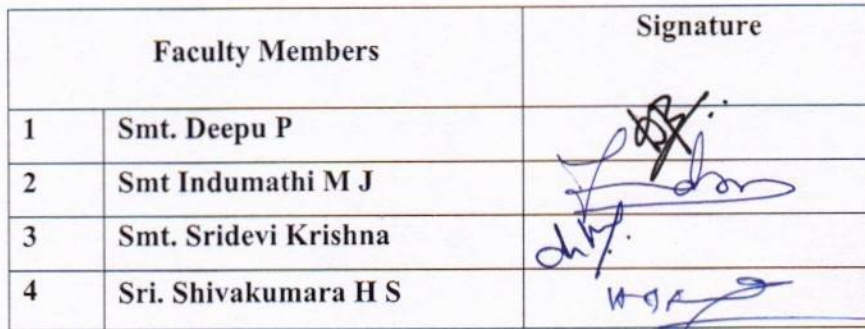 Faculty Members Signature
1 Smt. Deepu P
2 Smt Indumathi M J
3 Smt. Sridevi Krishna
4 Sri. Shivakumara H S